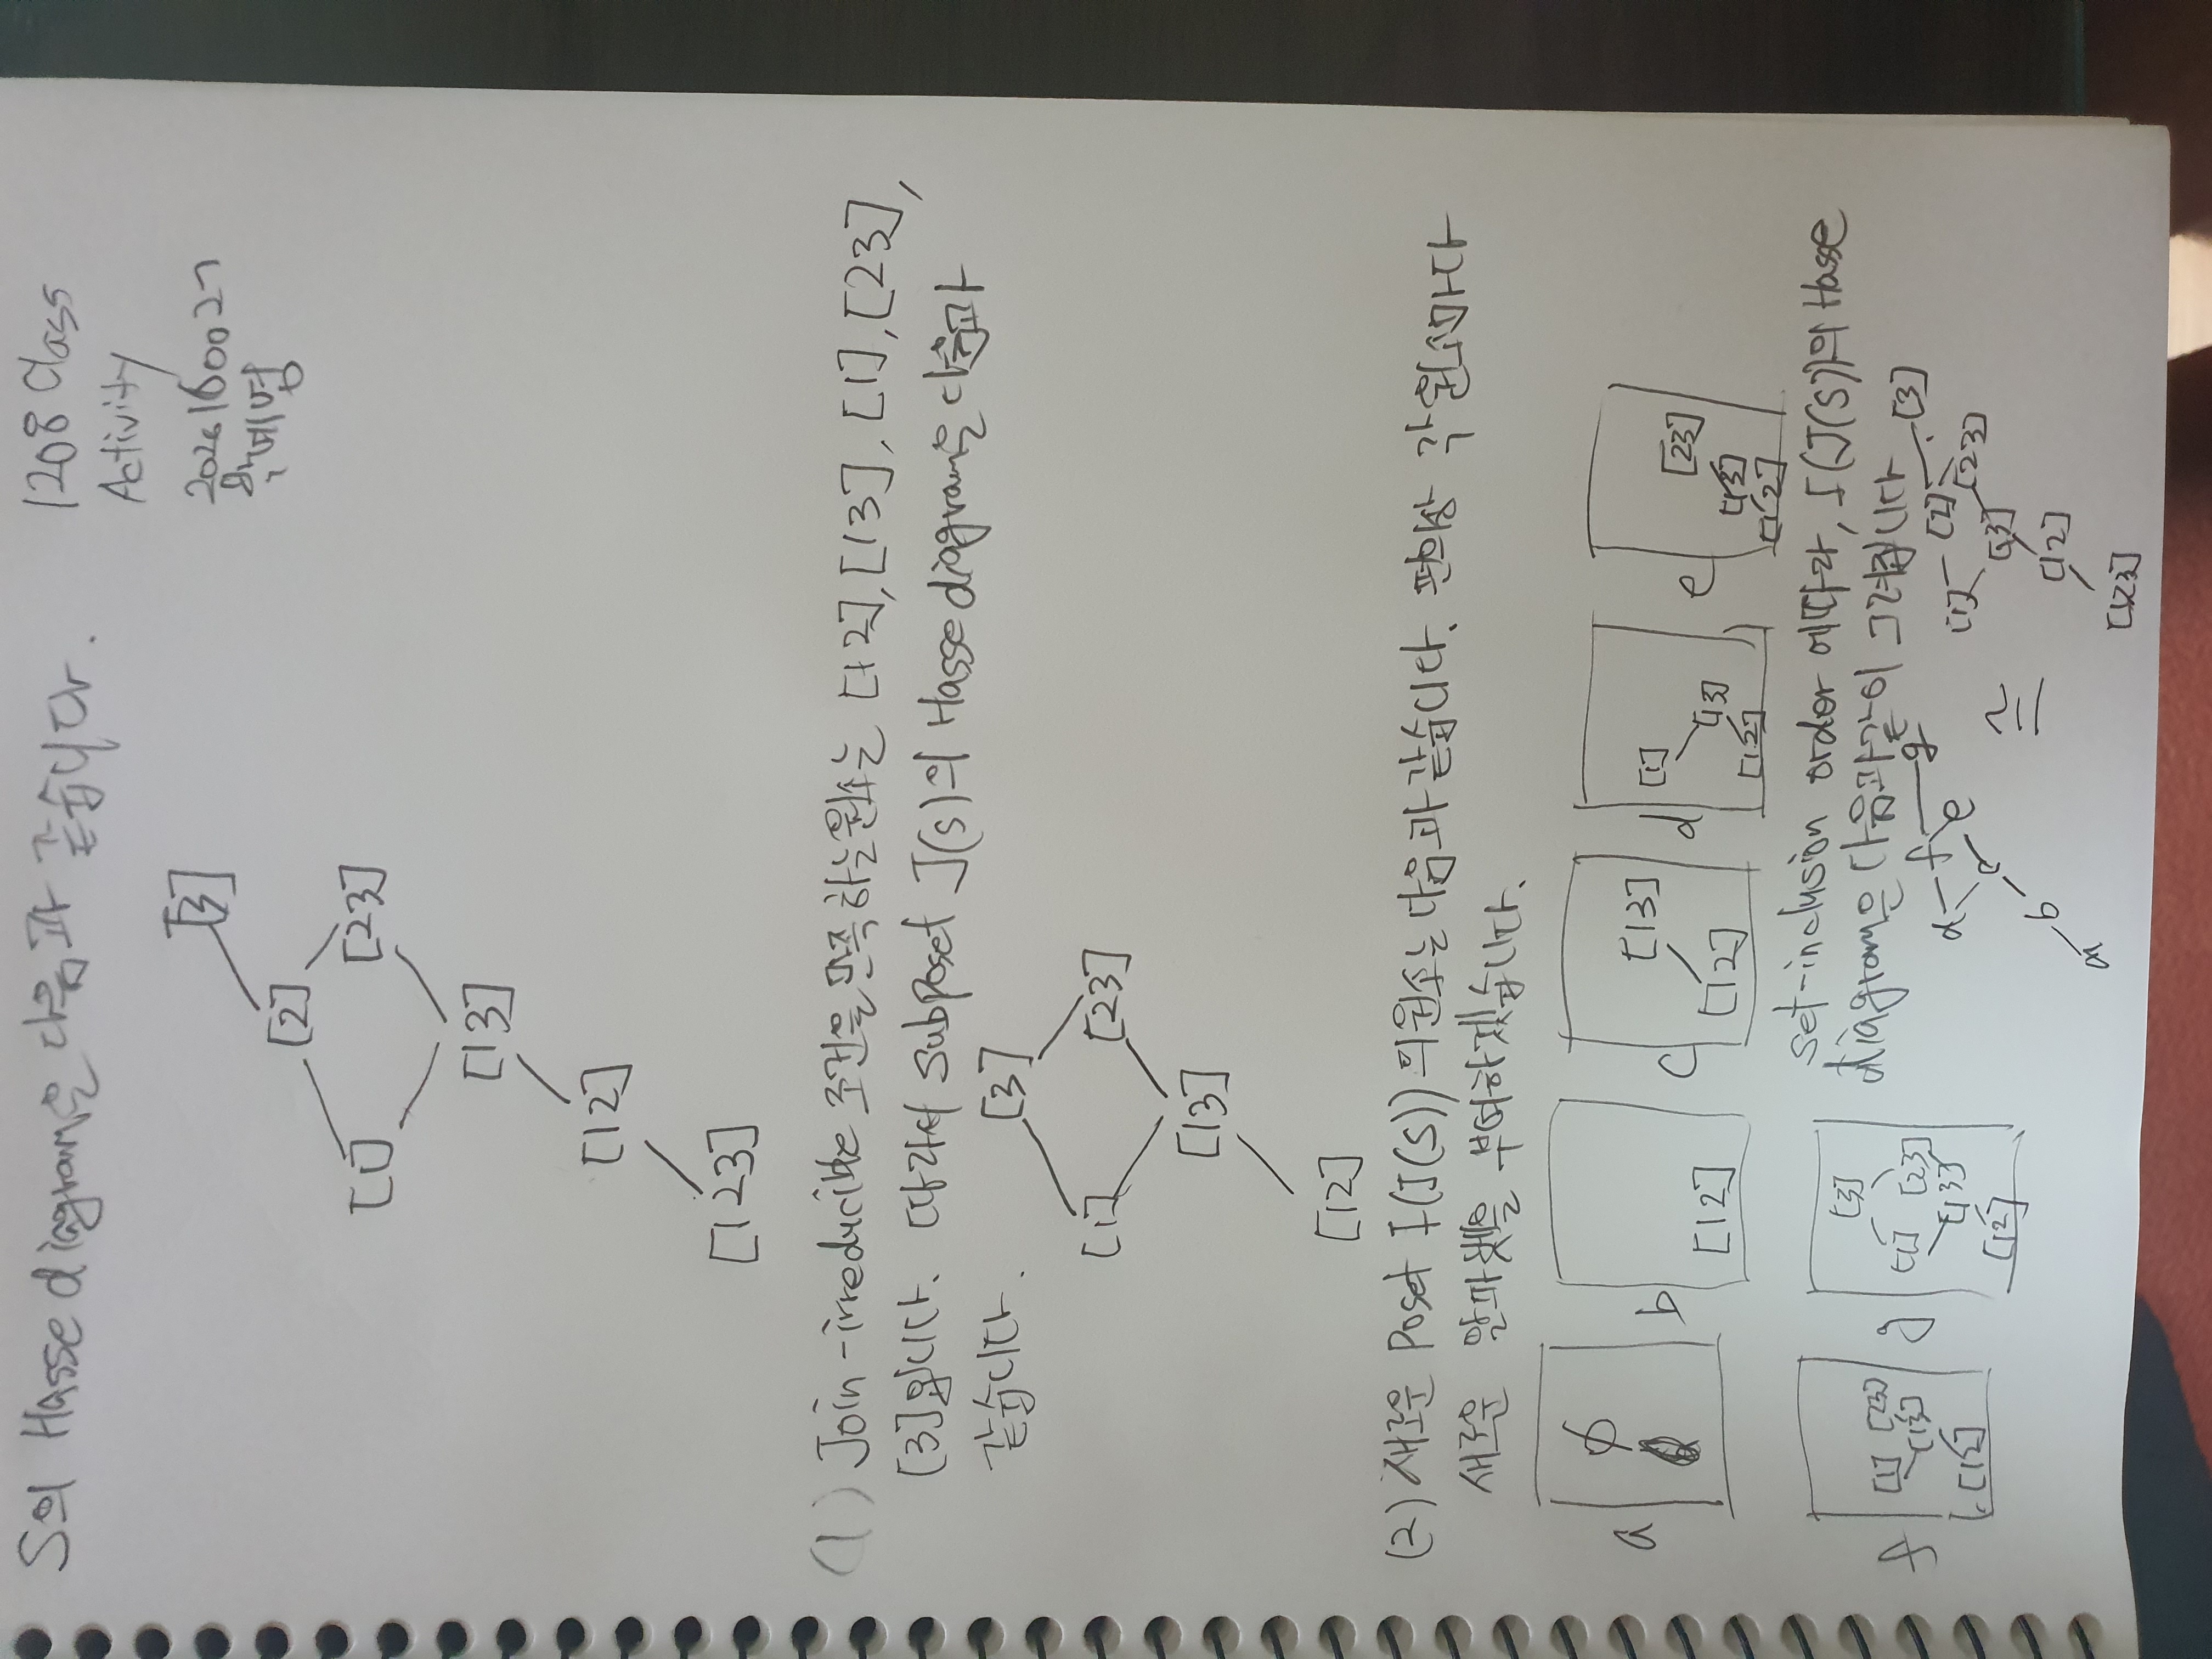 S의 Hasse diagram은 다음과 같습니다.
1208 Class
Activity
2026160027
[3]
[2]
[1]
[23]
[13]
[12]
[123]
(1) Join-irreducible 조건을 만족하는 원소는 [12], [13], [1], [23],
[3]입니다. 따라서 subposet J(S)의 Hasse diagram은 다음과
같습니다.
[3]
[1]
[23]
[13]
[12]
(2) 새로운 Poset I(J(S))의 원소는 다음과 같습니다. 편의상 각 원소마다
새로운 알파벳을 부여하겠습니다.
a
∅
b
[12]
c
[13]
[12]
d
[1]
[13]
[12]
e
[23]
[13]
[12]
f
[1] [23]
[13]
[12]
g
[3]
[1] [23]
[13]
[12]
set-inclusion order에 따라, I(J(S))의 Hasse
diagram은 다음과 같이 그려집니다
d f g
e
c
b
a
≅
[3]
[2]
[1]
[23]
[13]
[12]
[123]